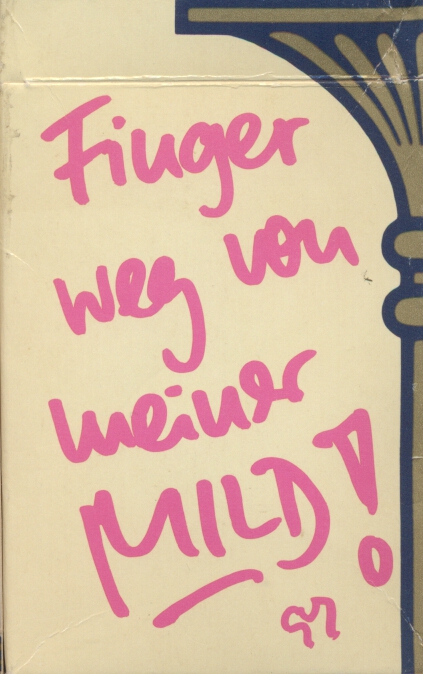 Finger
weg von
meiner
MILD!